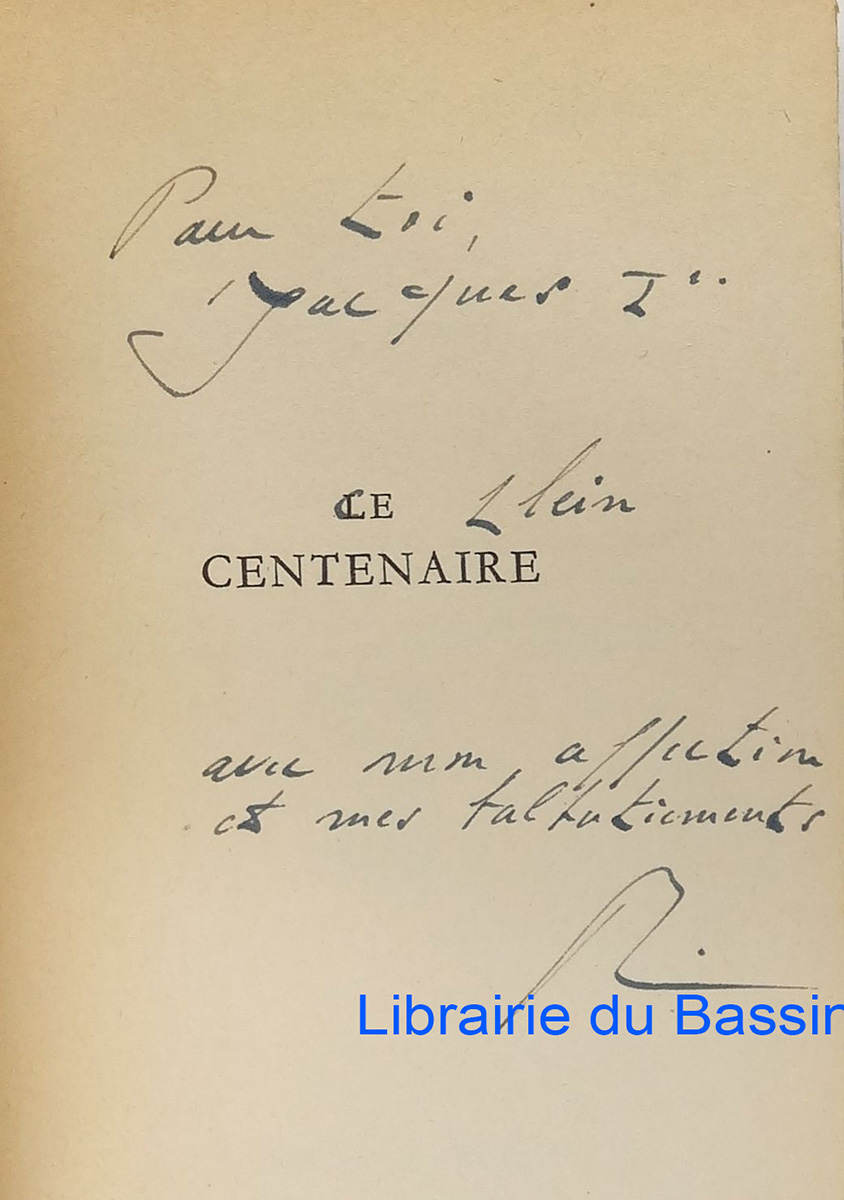 Pour toi,
Jacques Ier
LE
CENTENAIRE
avec mon affection
et mes balbutiements
Librairie du Bassin